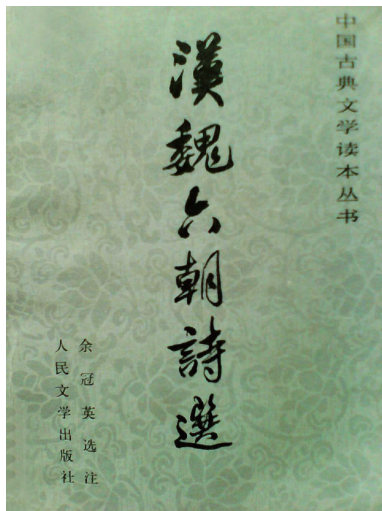 中国古典文学读本丛书
漢魏六朝詩選
余冠英选注
人民文学出版社